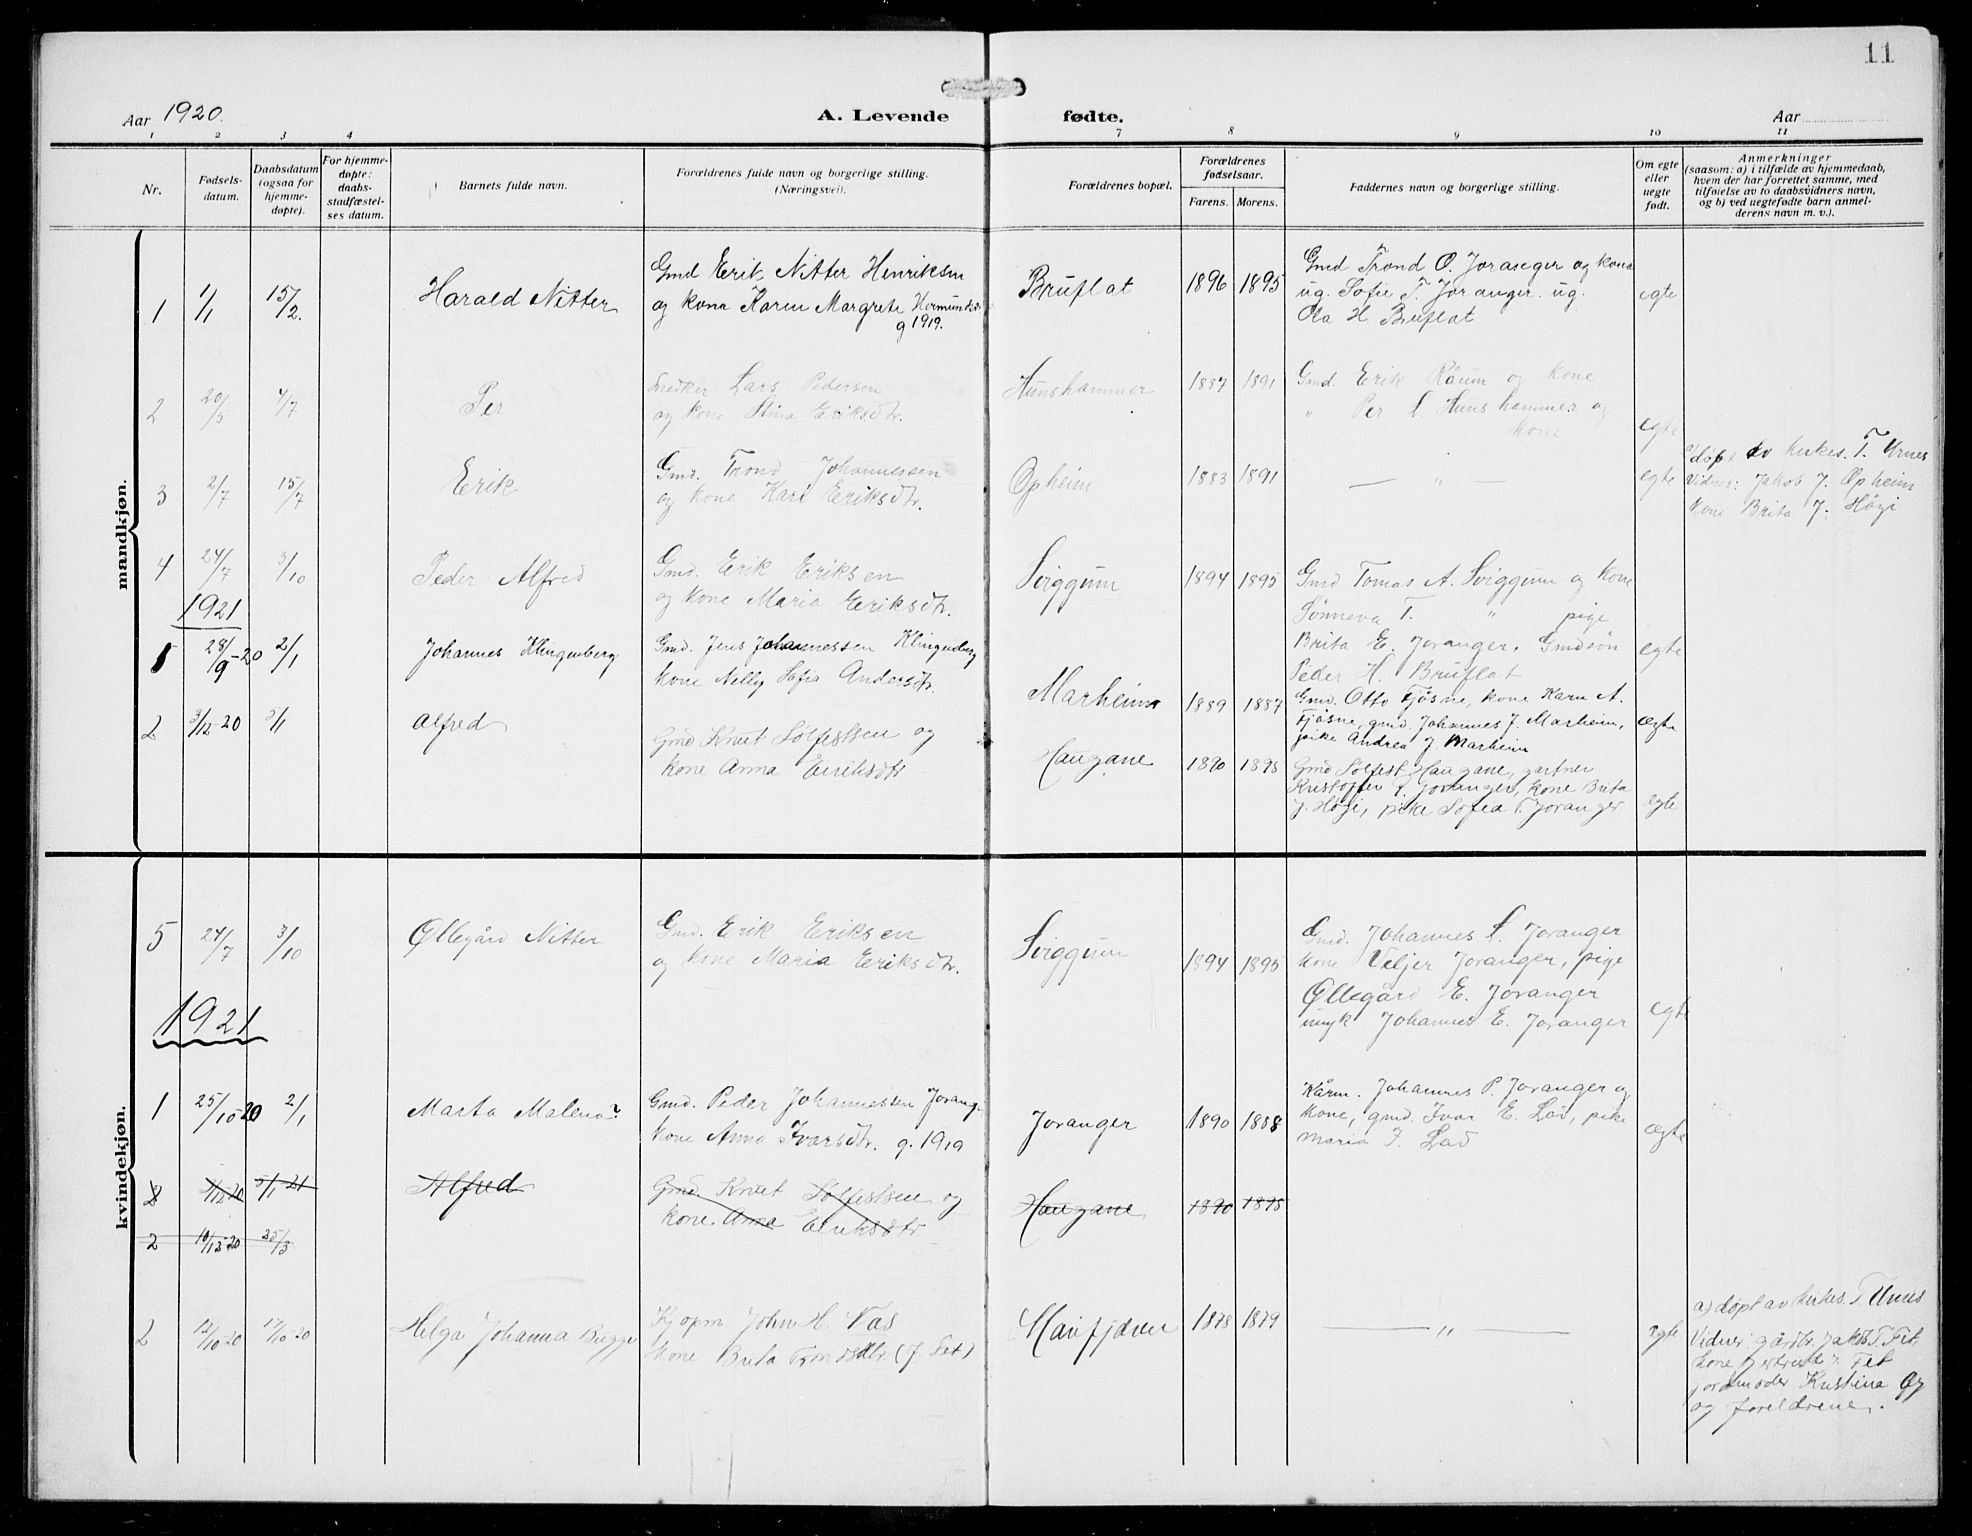 11
Aar 1920
A. Levende fødte.
Aar
1 2 3 4 7 8 9 10 11
Nr.
Fødsels-
datum.
Daabsdatum
(ogsaa for
hjemme-
døpte).
For hjemme-
døpte:
daabs-
stadfæstel-
ses datum.
Barnets fulde navn.
Forældrenes fulde navn og borgerlige stilling.
(Næringsvei).
Forældrenes bopæl.
Forældrenes
fødselsaar.
Farens. Morens.
Faddernes navn og borgerlige stilling.
Om egte
eller
uegte
født.
Anmerkninger
(saasom: a) i tilfælde av hjemmedaab,
hvem der har forrettet samme, med
tilføielse av to daabsvidners navn,
og b) ved uegtefødte barn anmel-
derens navn m. v.).
mandkjøn.
1 1/1 15/2. Harald Nitter
Gmd Erik Nitter Henriksen
og kona Karen Margrete Hermundsdr.
g 1919.
Bruflat 1896 1895
Gmd Trond O. Joranger og kona
ug. Sofie T. Joranger. ug.
Ola H. Bruflat
egte
2 20/5 4/7 Per
Snedker Lars Pedersen
og kone Stina Eriksdtr.
Hunshammer 1887 1891
Gmd. Erik Råum og kone
" Per L. Hunshammer og
kone
egte
3 2/7 15/7 Erik
Gmd. Trond Johannessen
og kone Kari Eriksdtr.
Opheim 1883 1891
— " —
egte
døpt av kirkes. T. Urnes
Vidner: Jakob J. Opheim
kone Brita J. Høgi
4 24/7 3/10 Peder Alfred
Gmd. Erik Eriksen
og kone Maria Eriksdtr.
Sviggum 1894 1895
Gmd Tomas A. Sviggum og kone
Sønneva T. " pige
Brita E. Joranger, Gmdsøn
Peder H. Bruflat
egte
1921
28/9-20 2/1 Johannes Klingenberg
Gmd. Jens Johannessen Klingenberg
kone Nelly Sofia Andersdtr.
Marheim 1889 1887
Gmd. Otto Fjøsne, kone Karn A.
Fjøsne, gmd. Johannes J. Marheim,
pike Andrea J. Marheim
ægte
2 3/12-20 Alfred
Gmd Knut Solfestsen og
kone Anna Eriksdtr
Haugane 1890 1895
Gmd Solfest Haugane, gartner
Kristoffer P. Joranger, kone Brita
J. Høgi, pike Sofia T. Joranger
egte
kvindekjøn.
5 24/7 3/10 Øllegård Nitter
Gmd. Erik Eriksen
og kone Maria Eriksdtr.
Sviggum 1894 1895
Gmd. Johannes L. Joranger
kone Veljer Joranger, pige
Øllegård E. Joranger
ungk Johannes E. Joranger
egte
1921
1 25/10-20 2/1 Marta Malena
Gmd. Peder Johannessen Joranger
kone Anna Ivarsdtr. g. 1919
Joranger 1890 1888
Kårm. Johannes P. Joranger og
kone, gmd. Ivar E. Lad, pike
Maria I. Lad
ægte
2 3/12-20 Alfred
Gmd. Knut Solfestsen og
kone Anna Eriksdtr
Haugane 1890 1895
2 10/12-20
2 12/10-20 17/10-20 Helga Johanna Bugge
Kjøpm John H. Næs
kone Brita Trondsdtr. (f. Fet)
Havfjæren 1878 1879
— " —
egte
a) døpt av kirkes. T Urnes
Vidner: gårdbr. Jakob T. Fet,
kone Jertrud Fet
jordmoder Kristina
og foreldrene.